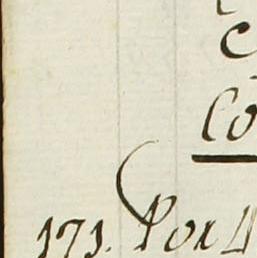 C
Co
171. Por 4